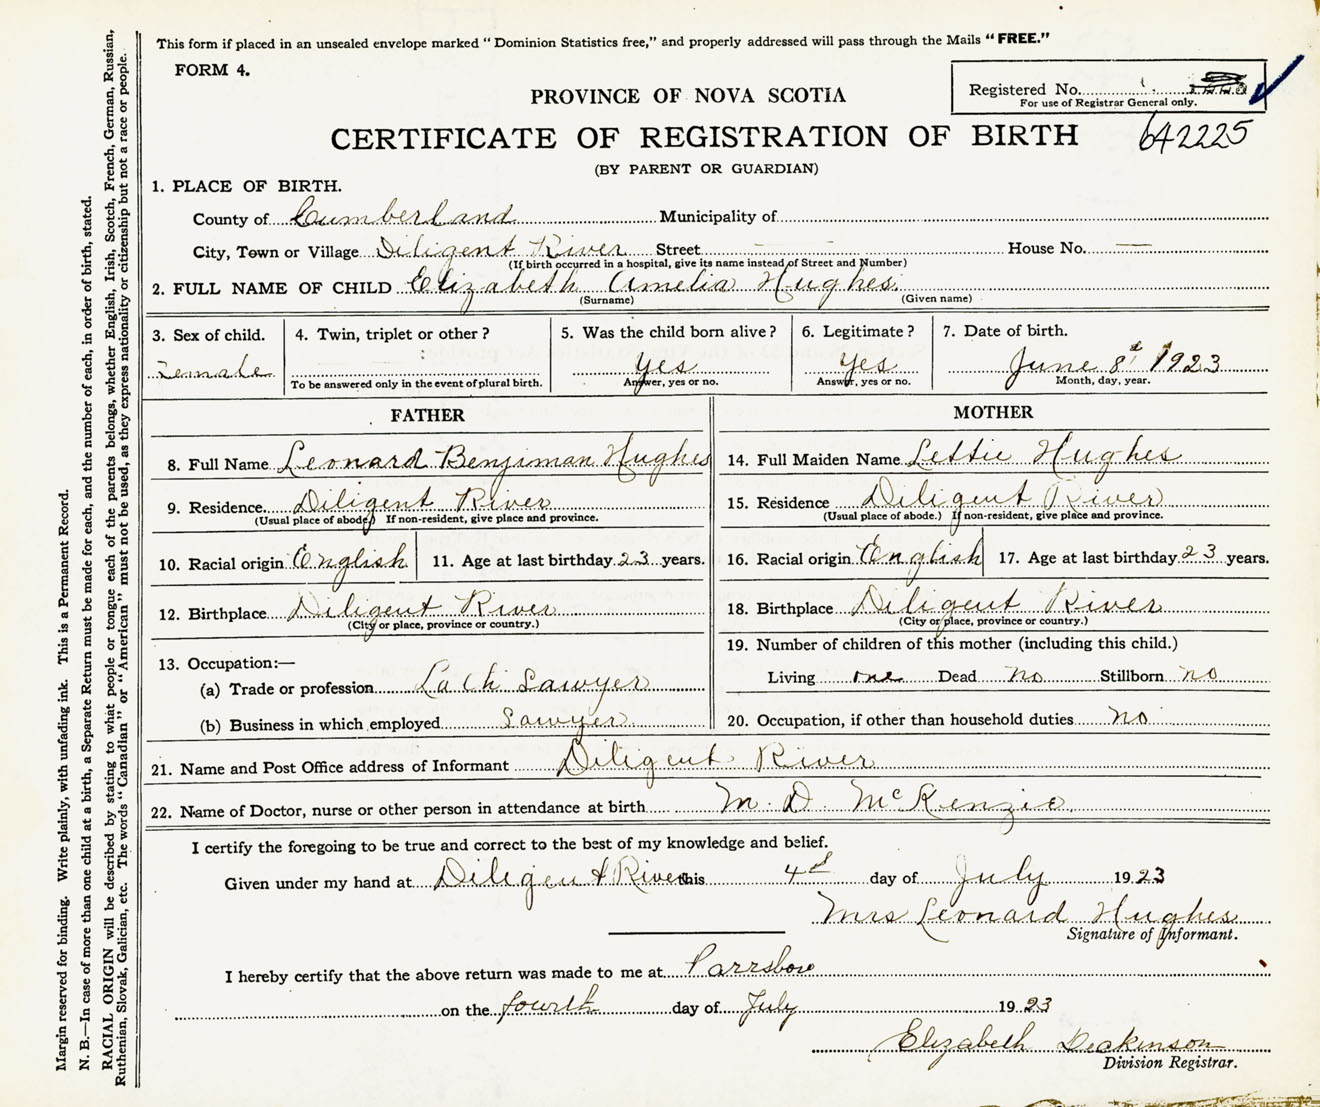 This form if placed in an unsealed envelope marked "Dominion Statistics free," and properly addressed will pass through the Mails "FREE."
FORM 4.
Registered No.
For use of Registrar General only.
642225
PROVINCE OF NOVA SCOTIA
CERTIFICATE OF REGISTRATION OF BIRTH
(BY PARENT OR GUARDIAN)
1. PLACE OF BIRTH.
County of Cumberland Municipality of
City, Town or Village Diligent River Street — House No. —
(If birth occurred in a hospital, give its name instead of Street and Number)
2. FULL NAME OF CHILD Elizabeth Amelia Hughes
(Surname) (Given name)
3. Sex of child. 4. Twin, triplet or other? 5. Was the child born alive? 6. Legitimate? 7. Date of birth.
Female yes yes June 8th 1923
To be answered only in the event of plural birth. Answer, yes or no. Answer, yes or no. Month, day, year.
FATHER
8. Full Name Leonard Benjiman Hughes
9. Residence Diligent River
(Usual place of abode.) If non-resident, give place and province.
10. Racial origin English 11. Age at last birthday 23 years.
12. Birthplace Diligent River
(City or place, province or country.)
13. Occupation:—
(a) Trade or profession Lath Sawyer
(b) Business in which employed Sawyer
MOTHER
14. Full Maiden Name Lettie Hughes
15. Residence Diligent River
(Usual place of abode.) If non-resident, give place and province.
16. Racial origin English 17. Age at last birthday 23 years.
18. Birthplace Diligent River
(City or place, province or country.)
19. Number of children of this mother (including this child.)
Living one Dead no Stillborn no
20. Occupation, if other than household duties no
21. Name and Post Office address of Informant Diligent River
22. Name of Doctor, nurse or other person in attendance at birth M. D. McKenzie
I certify the foregoing to be true and correct to the best of my knowledge and belief.
Given under my hand at Diligent River this 4th day of July 1923
Mrs Leonard Hughes
Signature of Informant.
I hereby certify that the above return was made to me at Parrsboro
on the fourth day of July 1923
Elizabeth Deckinson
Division Registrar.
Margin reserved for binding. Write plainly, with unfading ink. This is a Permanent Record.
N. B.—In case of more than one child at a birth, a Separate Return must be made for each, and the number of each, in order of birth, stated.
RACIAL ORIGIN will be described by stating to what people or tongue each of the parents belongs, whether English, Irish, Scotch, French, German, Russian,
Ruthenian, Slovak, Galician, etc. The words "Canadian" or "American" must not be used, as they express nationality or citizenship but not a race or people.